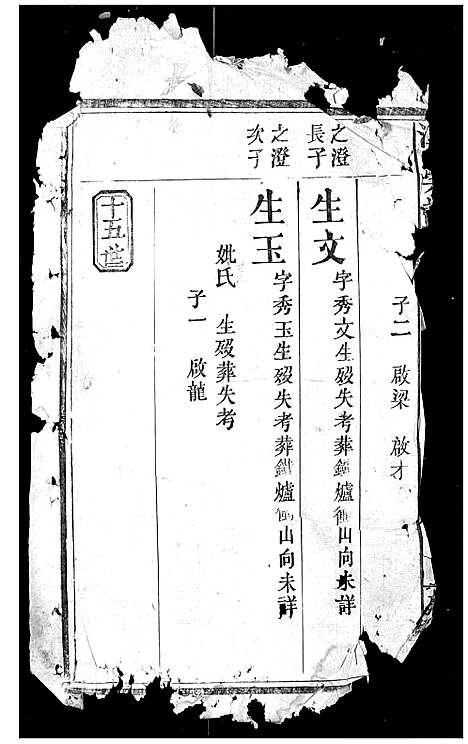 子二 啟梁 啟才
之澄
長子
生文
字秀文生歿失考葬鐵爐衝山向未詳
之澄
次子
生玉
字秀玉生歿失考葬鐵爐衝山向未詳
妣氏 生歿葬失考
子一 啟龍
十五世